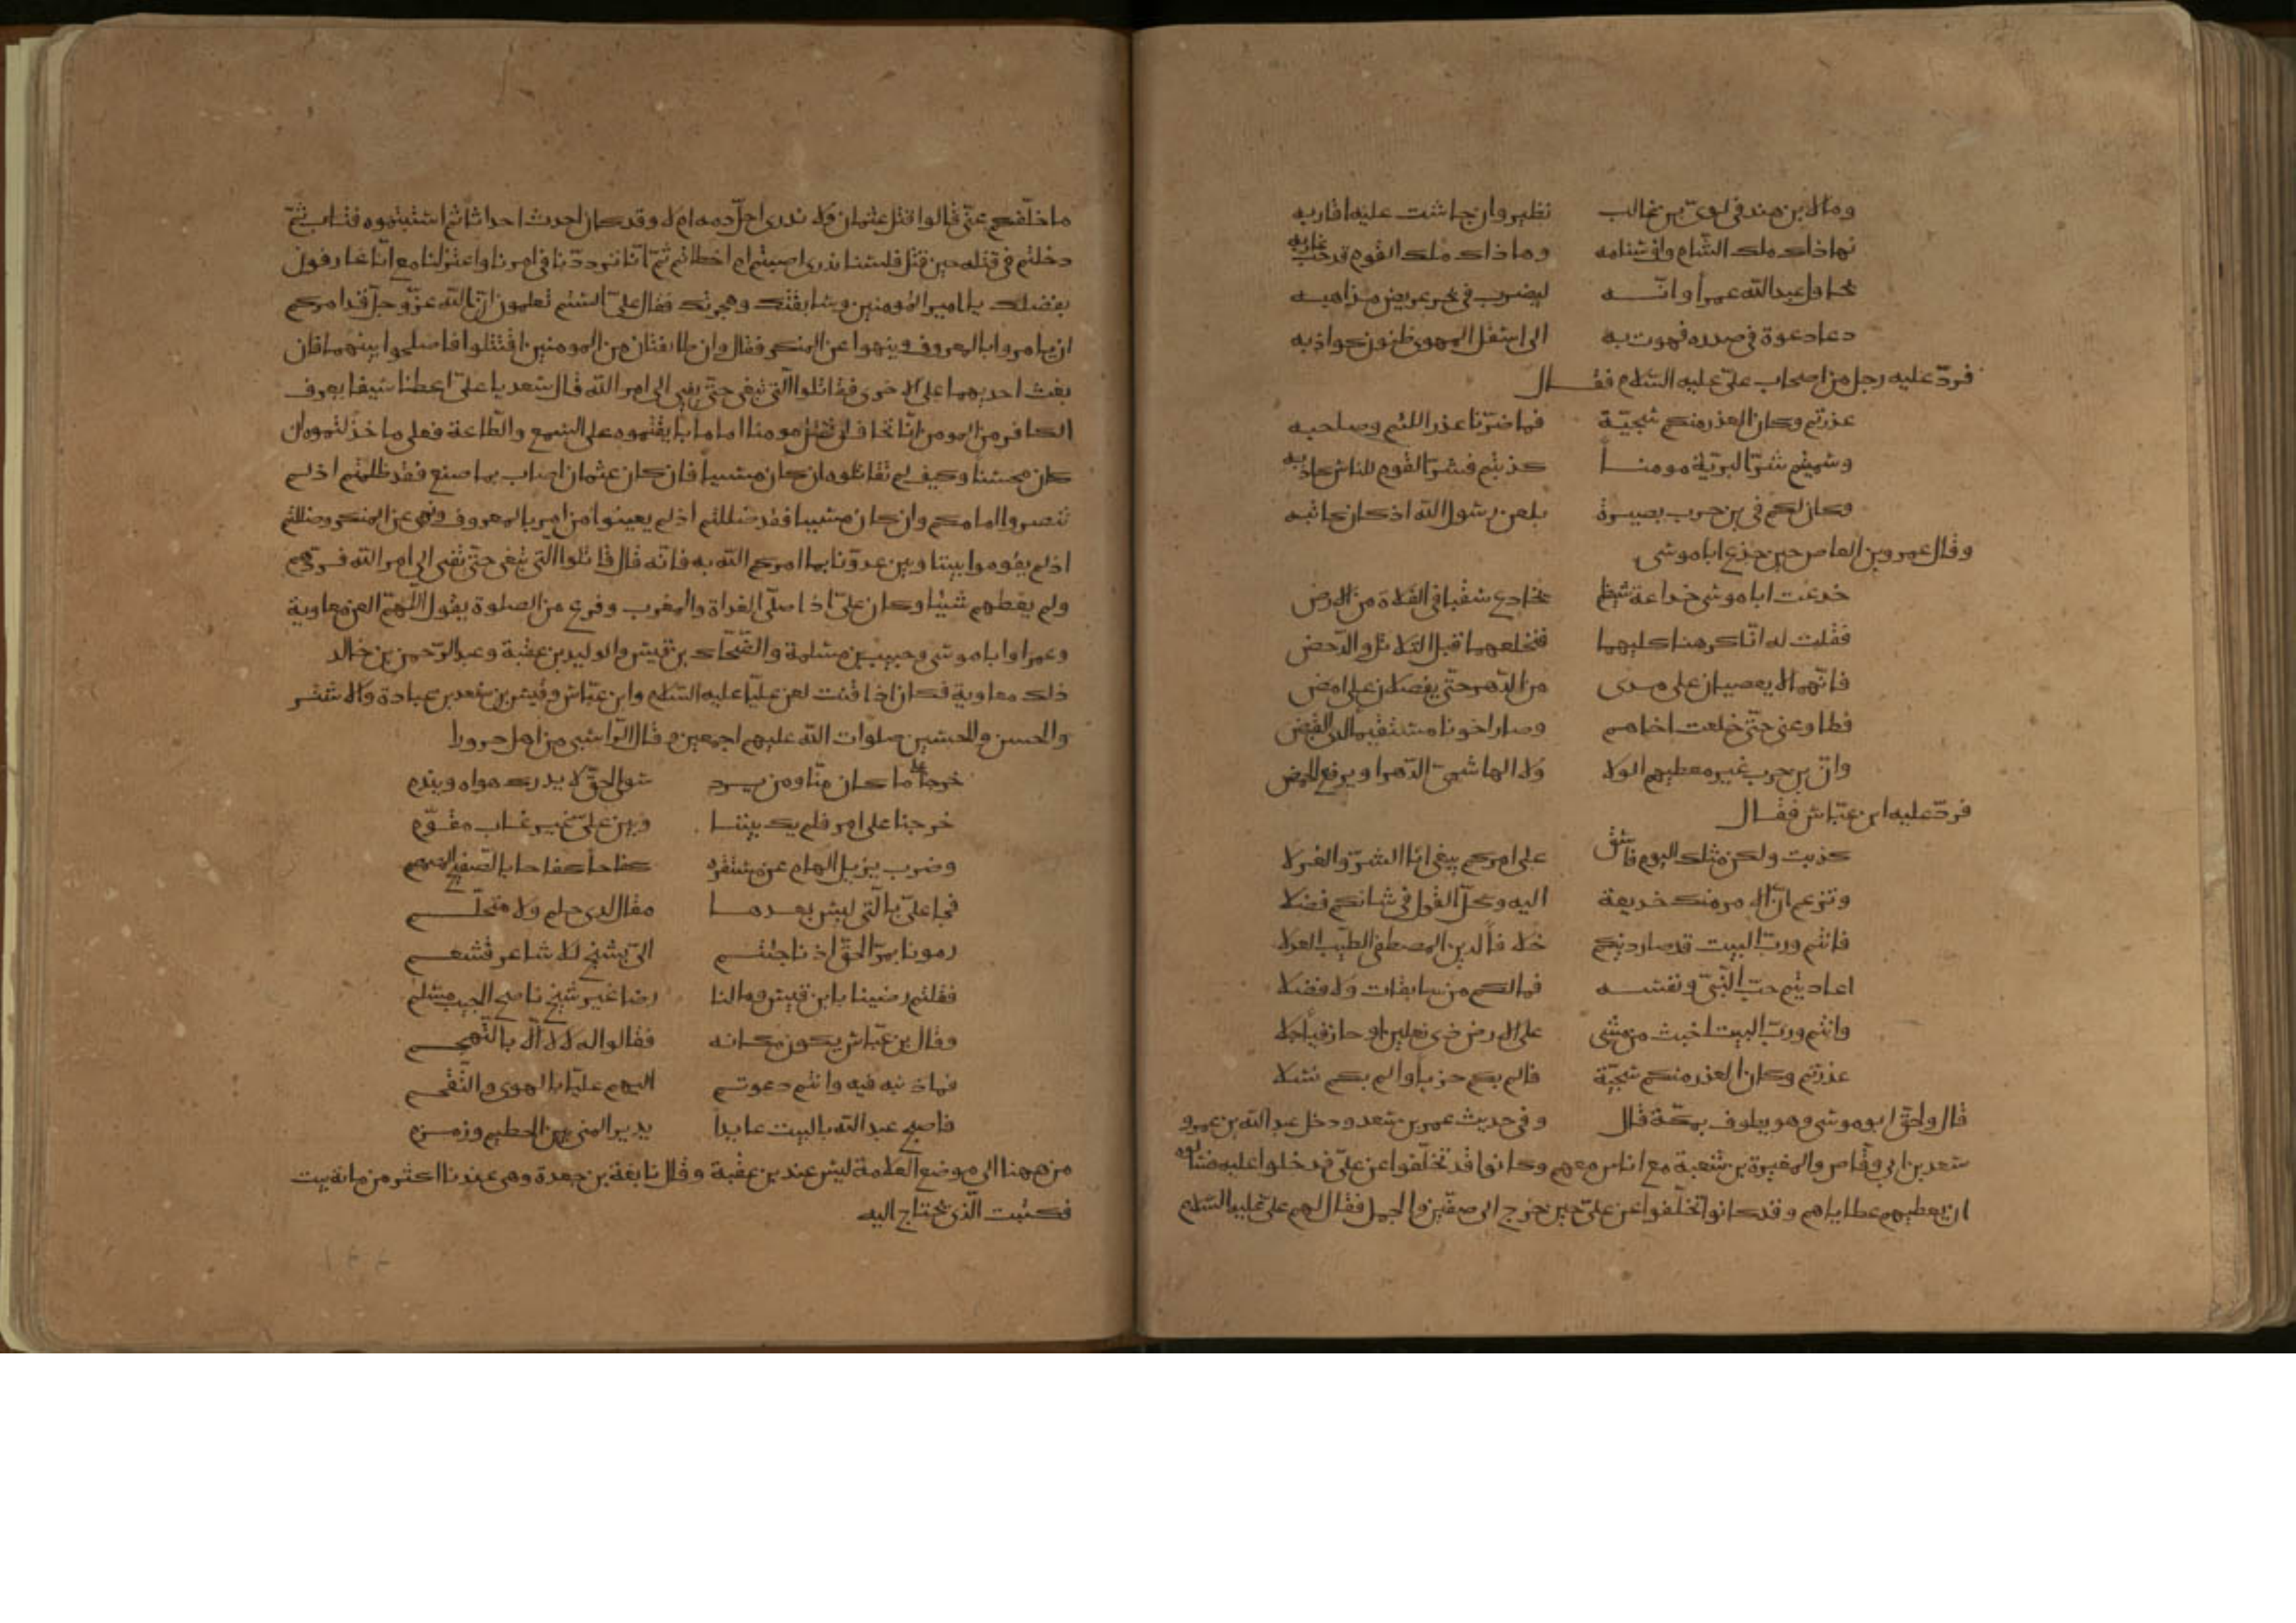 وما لابن هند في لوي بن غالب نظير وان جاشت عليه اقاربه
فهذاك ملك الشام واف سنامه وهذاك ملك القوم قد جب غاربه
يحاول عبد الله عمرا وانـــه ليضرب في بحر عريض مذاهبه
دعا دعوة في صدره فهوت به الى اسفل المهوى ظنون كواذبه
فرد عليه رجل من اصحاب علي عليه السلام فقـــال
غدرتم وكان الغدر منكم سجية فما ضرنا غدر اللئيم وصاحبه
وسميتم شر البرية مومنــا كذبتم فشر القوم للناس كاذبه
وكان لكم في بن حرب بصيرة بلعن رسول الله اذ كان كاتبه
وقال عمرو بن العاص حين خدع ابا موسى
خدعت ابا موسى خداعة شيظم يخادع سقبا في الفلاة من الارض
فقلت له انا كرهنا كليهما فنخلعهما قبل التلاتل والدحض
فانهما لا يغضيان على قذى من الدهر حتى يفصلان على امض
فطاوعني حتى خلعت اخاهم وصار اخونا مستقيما لدى القبض
وان بن حرب غير معطيهم الولا ولا الهاشمي الدهر او يرفع الحمض
فرد عليه ابن عباس فقــال
كذبت ولكن مثلك اليوم فاسق على امركم يبغي لنا الشر والغزلا
وتزعم ان الامر منك خديعة اليه وكل القول في شانكم فضلا
فانتم ورب البيت قد صار دينكم خلافا لدين المصطفى الطيب العدلا
اعاديتم حب النبي ونفســه فما لكم من سابقات ولا فضلا
وانتم ورب البيت اخبث من مشى على الارض ذي نعلين او حافيا رجلا
غدرتم وكان الغدر منكم سجية فالم بكم حزبا والم بكم نسلا
قال ولحق ابو موسى وهو يطوف بمكة قال وفي حديث عمر بن سعد ودخل عبد الله بن عمر و
سعد بن ابي وقاص والمغيرة بن شعبة مع اناس معهم وكانوا قد تخلفوا عن علي فدخلوا عليه فسالوه
ان يعطيهم عطاياهم وقد كانوا تخلفوا عن علي حين خرج الى صفين والجمل فقال لهم علي عليه السلام
ما خلفكم عني قالوا قتل عثمان ولا ندري احل دمه ام لا وقد كان احدث احداثا ثم استتبتموه فتاب ثم
دخلتم في قتله حين قتل فلسنا ندري اصبتم ام اخطاتم ثم انا ترددنا في امرنا واعتزلنا مع انا عارفون
بفضلك يا امير المومنين وسابقتك وهجرتك فقال علي الستم تعلمون ان الله عز وجل قد امركم
ان يامروا بالمعروف وينهوا عن المنكر فقال وان طايفتان من المومنين اقتتلوا فاصلحوا بينهما فان
بغت احديهما على الاخرى فقاتلوا التي تبغي حتى تفي الى امر الله قال سعد يا علي اعطنا سيفا يعرف
الكافر من المومن انا نخاف ان نقتل مومنا اماما بايعتموه على السمع والطاعة فعلى ما خذلتموه ان
كان محسنا وكيف لم تقاتلوه ان كان مسيئا فان كان عثمان اصاب بما صنع فقد ظلمتم اذ لم
تنصروا امامكم وان كان مسيئا فقد ضللتم اذ لم يعينوا من امر بالمعروف ونهى عن المنكر وضللتم
اذ لم يقوموا بيننا وبين عدونا بما امركم الله به فانه قال قاتلوا التي تبغي حتى تفي الى امر الله فردهم
ولم يعطهم شيئا وكان علي اذا صلى الغداة والمغرب وفرغ من الصلوة يقول اللهم العن معاوية
وعمرا وابا موسى وحبيب بن مسلمة والضحاك بن قيس والوليد بن عقبة وعبد الرحمن بن خالد
ذلك معاوية فكان اذا قنت لعن عليا عليه السلام وابن عباس وقيس بن سعد بن عبادة والاشتر
والحسن والحسين صلوات الله عليهم اجمعين وقال الراسبي من اهل حرورا
خرجنا على ما كان منا ومن يرد سوى الحق لا يدرك هواه ويندم
خرجنا على امر فلم يك بيننــا وبين علي غير غاب مقوم
وضرب يزيل الهام عن مستقره كفاحا كفاحا بالصفيح المصمم
فجا علي بالتي ليس بعدهــا مقال لدى حلم ولا متحلـــم
رمونا بمر الحق اذ نا جئتــم الى بشيخ للاشاعر قشعــم
فقلتم رضينا بابن قيس وما لنا رضا غير شيخ ناصح الجيب مسلم
وقال بن عباس يكون مكانه فقالوا له لا لا الا بالتهجـــم
فما ذنبه فيه وانتم دعوتــم اليهم عليا بالهوى والتقحــم
فاصبح عبد الله بالبيت عايدا يدير المنى بين الحطيم وزمــزم
من ههنا الى موضع العلامة ليس عند بن عقبة وقال نابغة بن جعدة وهي عندنا اكثر من ماية بيت
فكتبت الذي يحتاج اليه